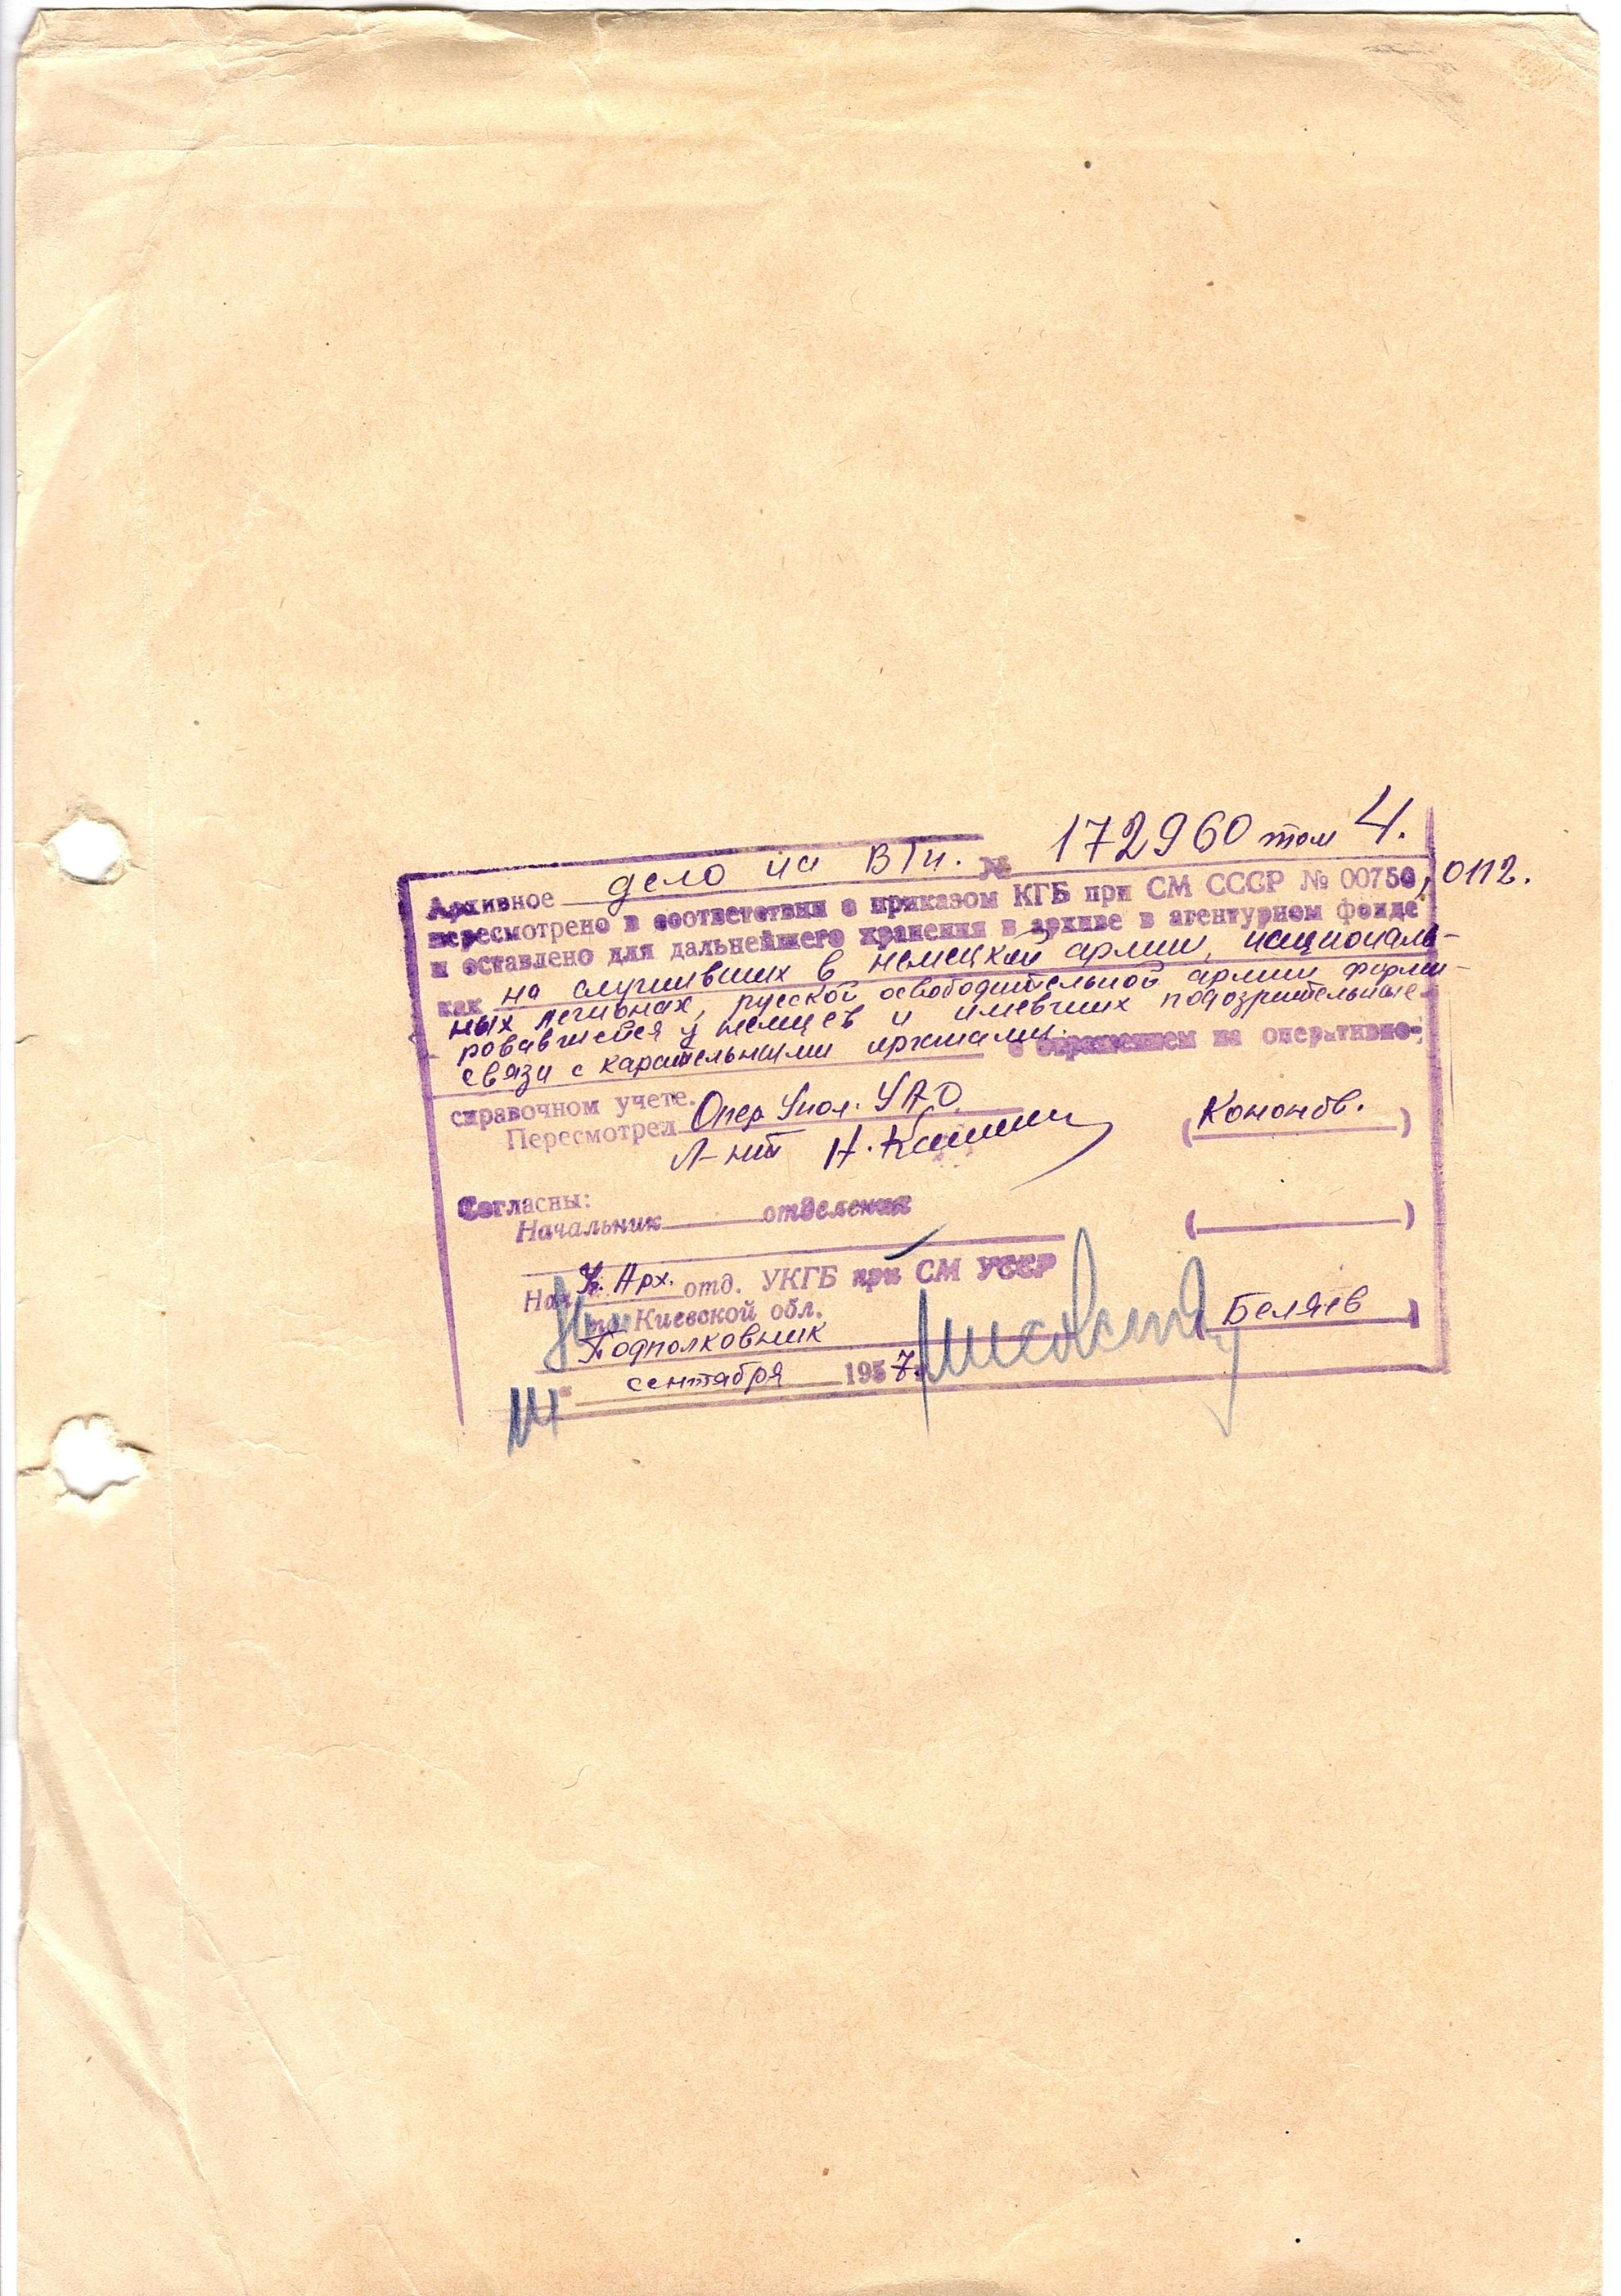 Архивное дело на ВТн. № 172960 том 4.
пересмотрено в соответствии с приказом КГБ при СМ СССР № 00750, 0112.
и оставлено для дальнейшего хранения в архиве в агентурном фонде
как на служивших в немецкой армии, националь-
ных легионах, русской освободительной армии форми-
ровавшейся у немцев и имевших подозрительные
связи с карательными органами. с отражением на оперативно-
справочном учете.
Пересмотрел Опер Упол. УАО
Л-нт Н. (Кононов.)
Согласны:
Начальник отделения ( )
Нач. Арх. отд. УКГБ при СМ УССР
по Киевской обл.
Подполковник (Беляев)
14 " сентября 1957